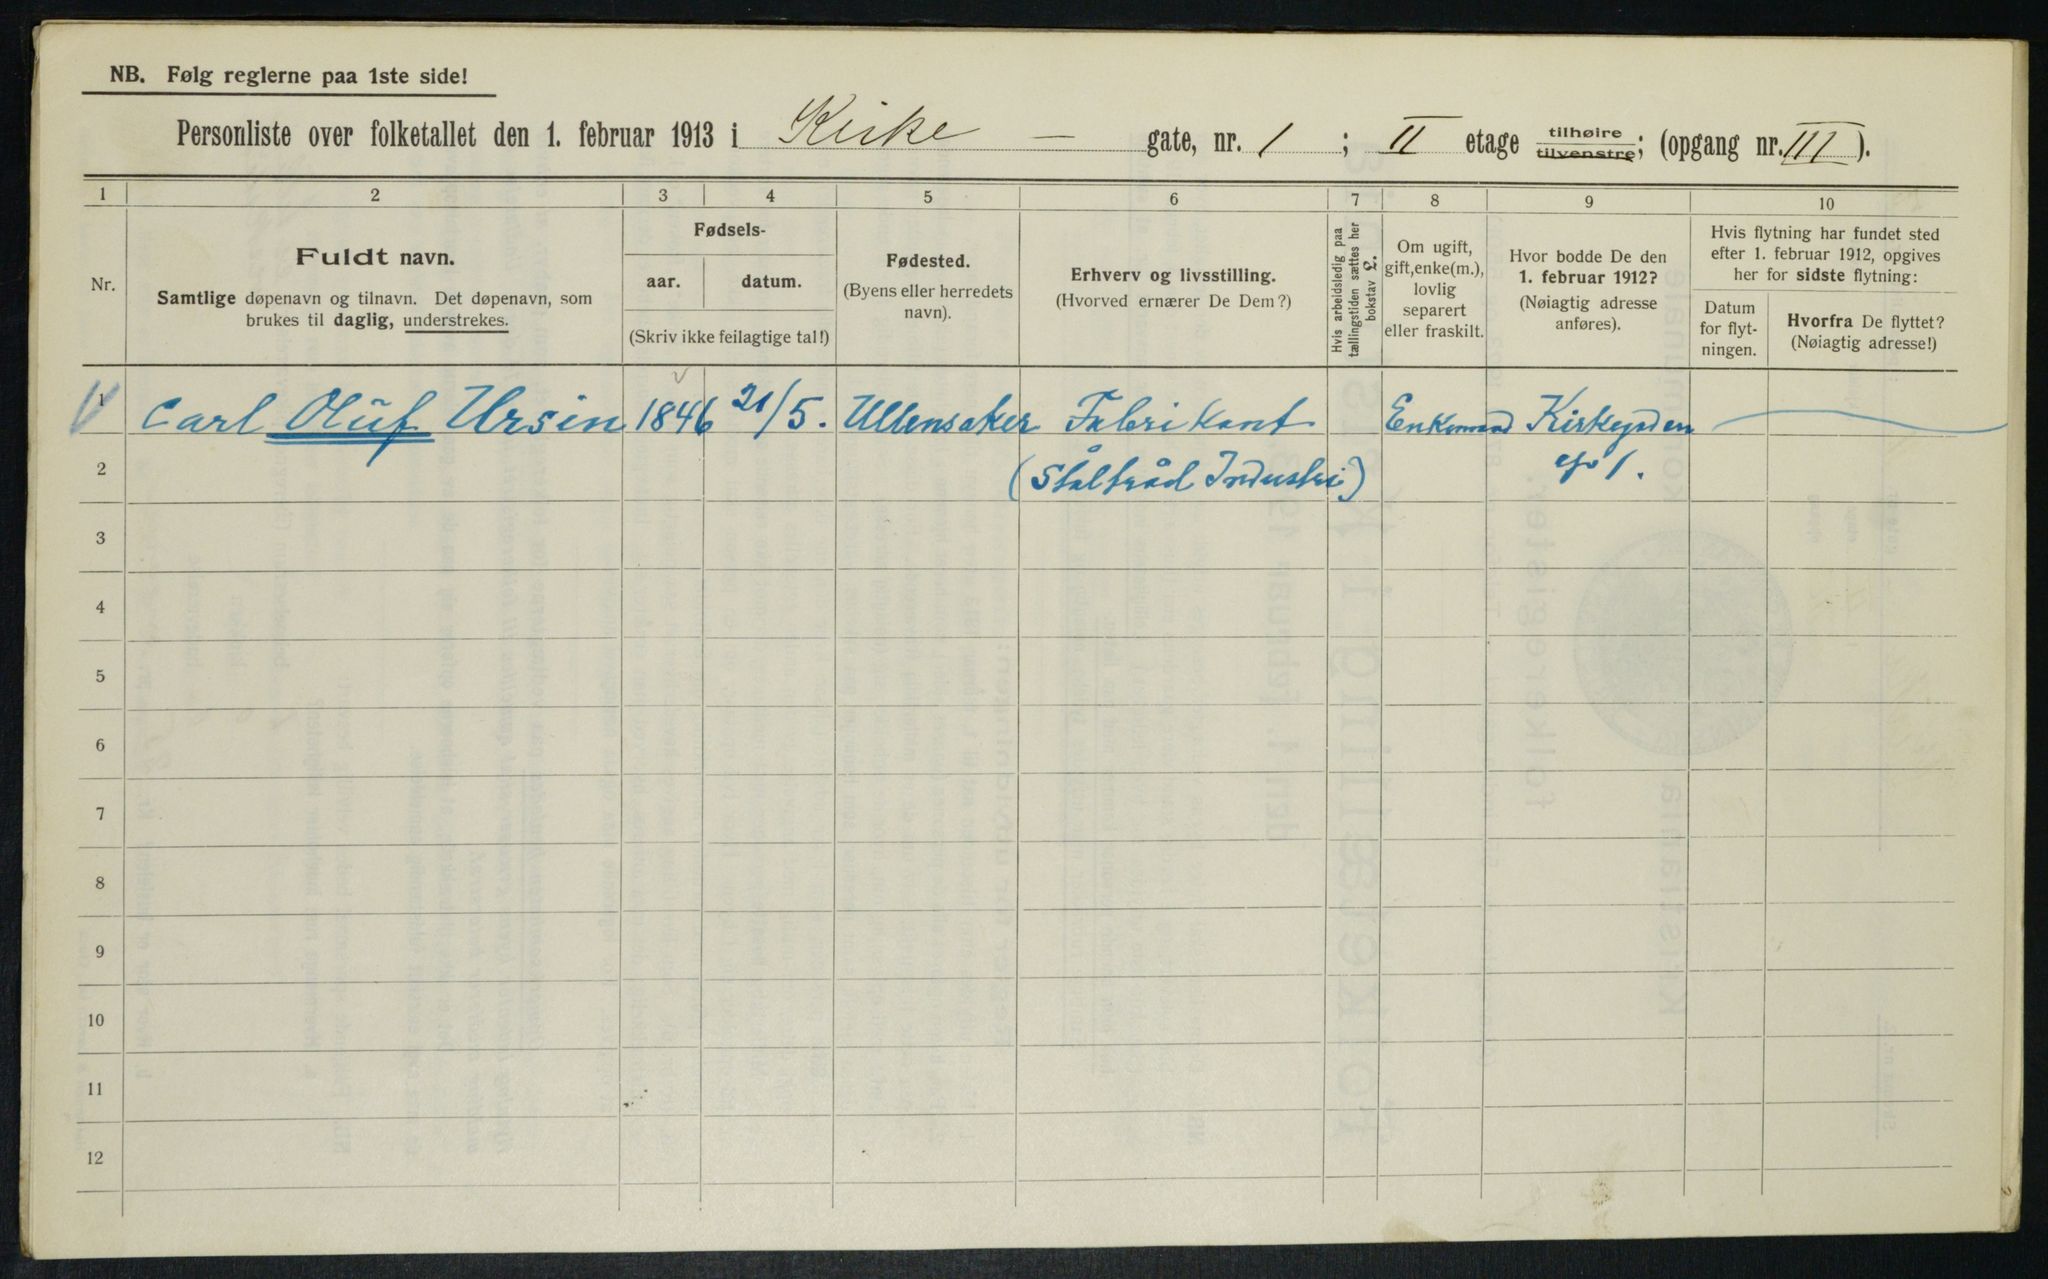 NB. Følg reglerne paa 1ste side!
Personliste over folketallet den 1. februar 1913 i Kirke — gate, nr. 1 ; II etage tilhøire tilvenstre; (opgang nr. III ).
1 2 3 4 5 6 7 8 9 10
Nr.
Fuldt navn.
Samtlige døpenavn og tilnavn. Det døpenavn, som
brukes til daglig, understrekes.
Fødsels-
aar. datum.
(Skriv ikke feilagtige tal!)
Fødested.
(Byens eller herredets
navn).
Erhverv og livsstilling.
(Hvorved ernærer De Dem?)
Hvis arbeidsledig paa
tællingstiden sættes her
bokstav L.
Om ugift,
gift, enke(m.),
lovlig
separert
eller fraskilt.
Hvor bodde De den
1. februar 1912?
(Nøiagtig adresse
anføres).
Hvis flytning har fundet sted
efter 1. februar 1912, opgives
her for sidste flytning:
Datum
for flyt-
ningen.
Hvorfra De flyttet?
(Nøiagtig adresse!)
1 Carl Oluf Ursin 1846 21/5. Ullensaker Fabrikant Enkemand Kirkegaden
2 (Ståltråd Industri) 1.
3
4
5
6
7
8
9
10
11
12